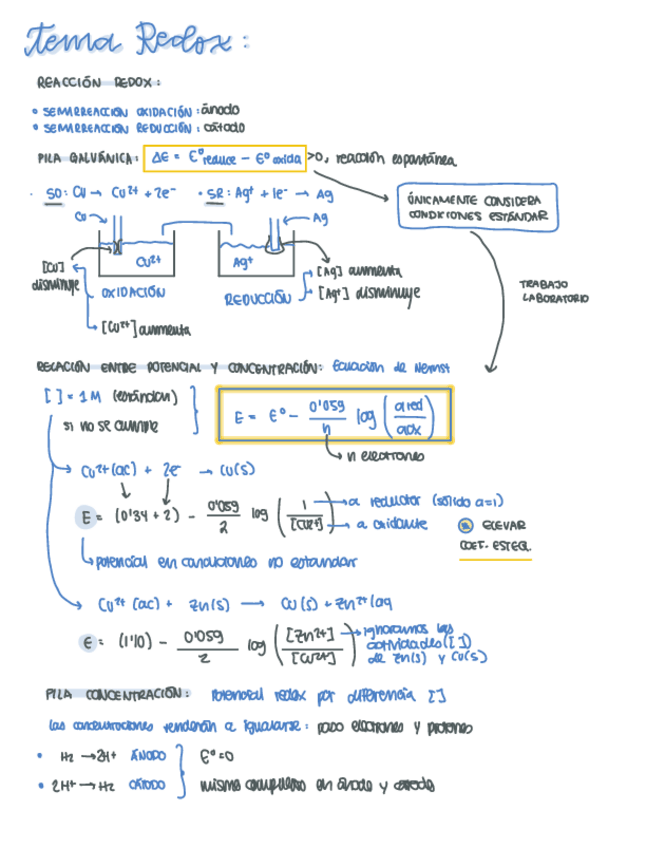 Tema Redox:
REACCIÓN REDOX:
• SEMIRREACCIÓN OXIDACIÓN: ánodo
• SEMIRREACCIÓN REDUCCIÓN: cátodo
PILA GALVÁNICA: ΔE = E° reduce - E° oxida >0, reacción espontánea
· SO: Cu → Cu²⁺ + 2e⁻ · SR: Ag⁺ + 1e⁻ → Ag
ÚNICAMENTE CONSIDERA
CONDICIONES ESTÁNDAR
Cu Ag
Cu²⁺ Ag⁺
[Cu]
disminuye
OXIDACIÓN
[Cu²⁺] aumenta
REDUCCIÓN
[Ag] aumenta
[Ag⁺] disminuye
TRABAJO
LABORATORIO
RELACIÓN ENTRE POTENCIAL Y CONCENTRACIÓN: Ecuación de Nernst
[ ] = 1M (estándar)
si no se cumple
E = E° - 0'059/n log (a red/a ox)
n electrones
Cu²⁺(ac) + 2e⁻ → Cu(s)
E = (0'34 + 2) - 0'059/2 log (1/[Cu²⁺])
a reductor (sólido a=1)
a oxidante
ELEVAR
COEF. ESTEQ.
potencial en condiciones no estándar
Cu²⁺ (ac) + Zn(s) → Cu(s) + Zn²⁺(aq
E = (1'10) - 0'059/2 log ([Zn²⁺]/[Cu²⁺])
ignoramos las
actividades ([ ])
de Zn(s) y Cu(s)
PILA CONCENTRACIÓN: Potencial redox por diferencia [ ]
Las concentraciones tenderán a igualarse: paso electrones y protones
• H₂ → 2H⁺ ÁNODO
• 2H⁺ → H₂ CÁTODO
E° = 0
mismo compuesto en ánodo y cátodo